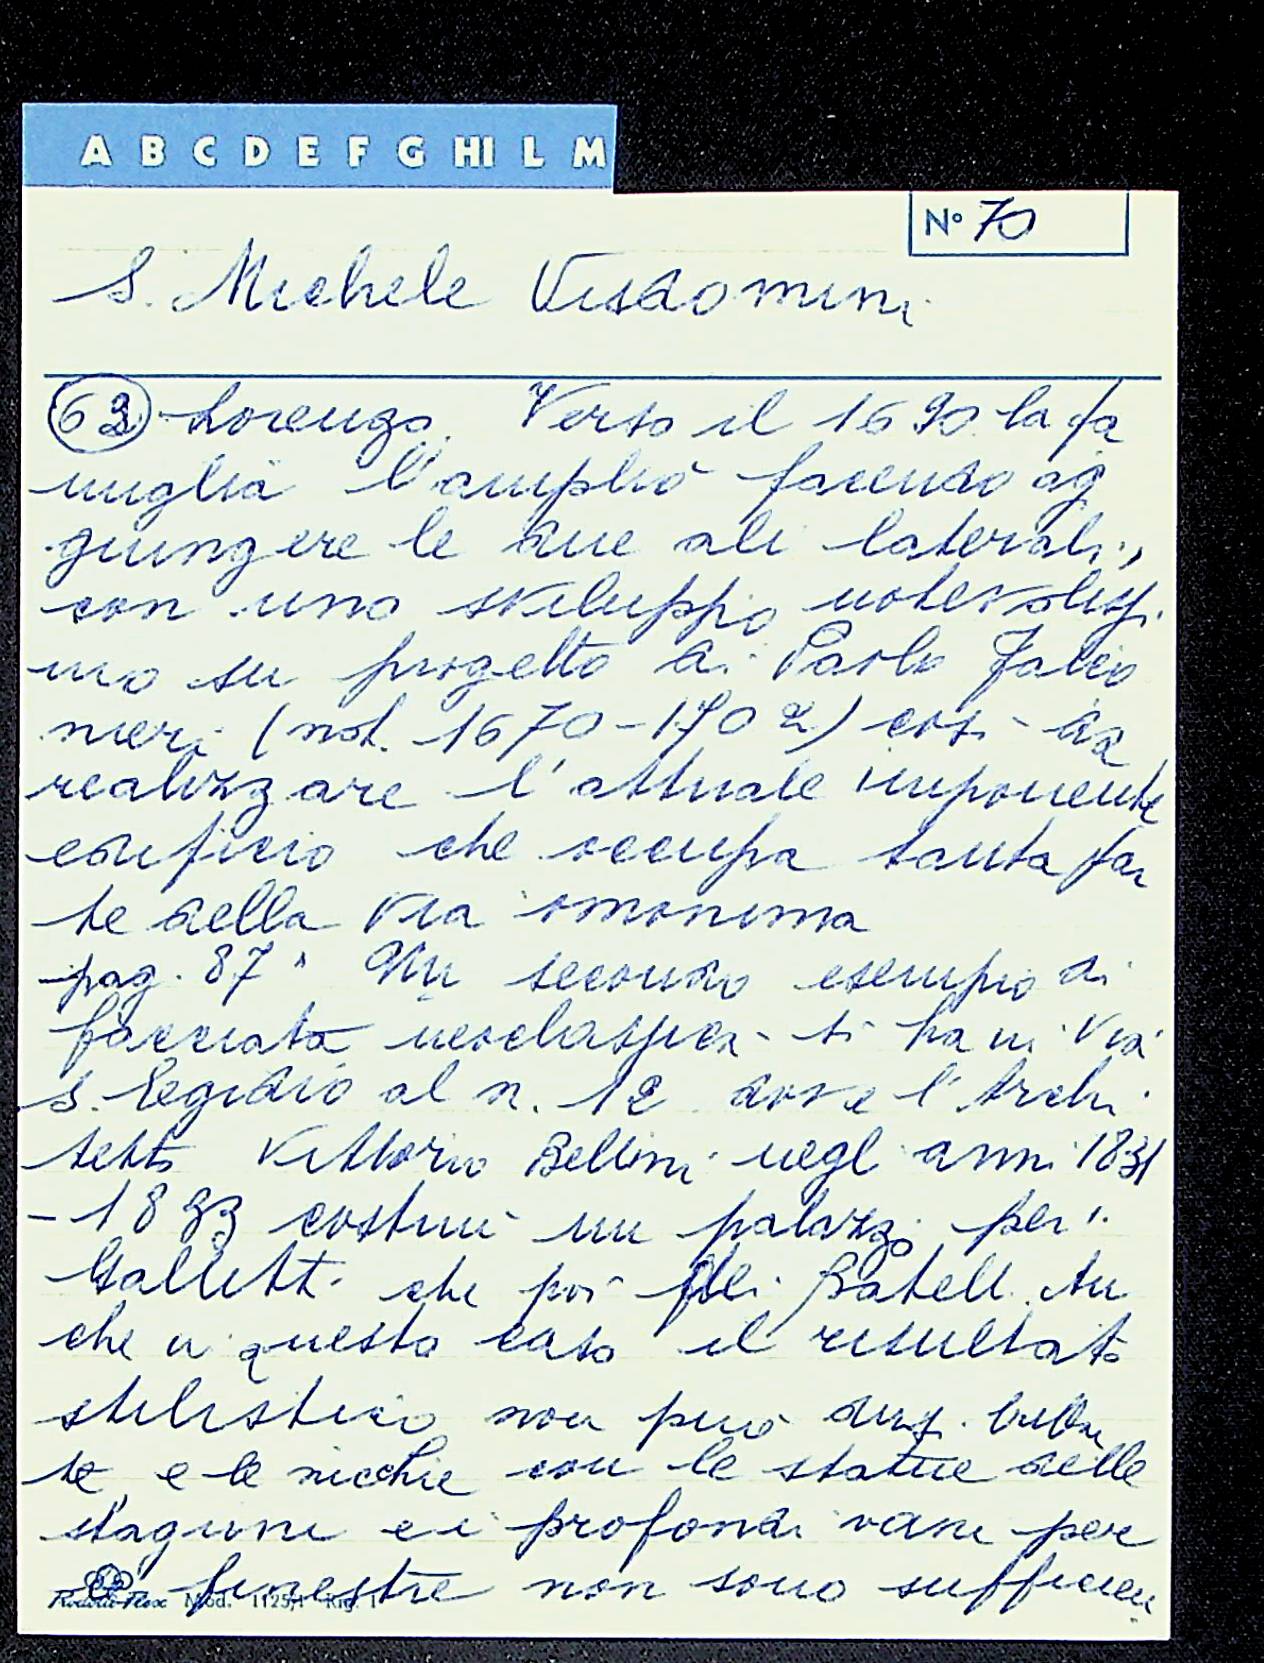 A B C D E F G HI L M
N° 70
S. Michele Visdomini
63 Lorenzo. Verso il 1690 la fa
miglia l'ampliò facendo ag
giungere le due ali laterali,
con uno sviluppo notevolissi
mo su progetto di Paolo Falco
nieri (not. 1670-1702) così da
realizzare l'attuale imponente
edificio che occupa tanta par
te della Via omonima
pag. 87" Un secondo esempio di
facciata neoclassica si ha in Via
S. Egidio al n. 12 dove l'Archi
tetto Vittorio Bellini negli anni 1831
-1833 costruì un palazzo per i
Galletti che poi
che in questo caso il risultato
stilistico non può dirsi brillan
te e le nicchie con le statue delle
stagioni e i profondi vani per
le finestre non sono sufficien
Mod. 1125/1 Rig. 1